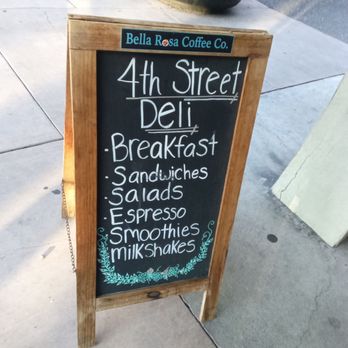 Bella Rosa Coffee Co.
4th Street
Deli
· Breakfast
· Sandwiches
· Salads
· Espresso
Smoothies
milkshakes